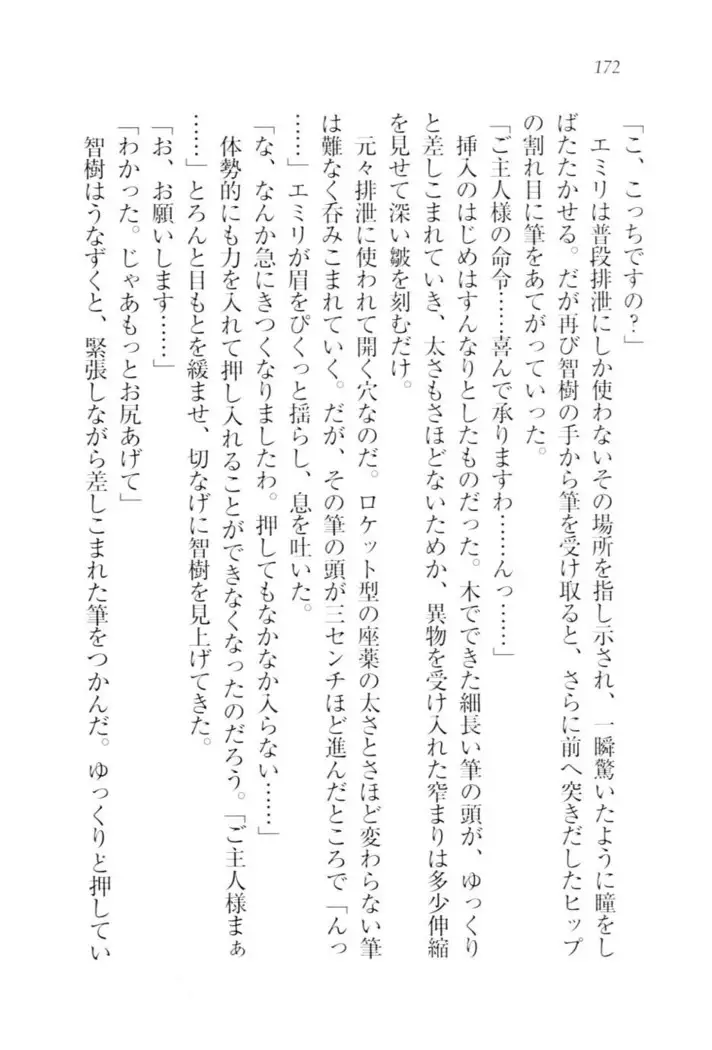 172
「こ、こっちですの？」
エミリは普段排泄にしか使わないその場所を指し示され、一瞬驚いたように瞳をし
ばたたかせる。だが再び智樹の手から筆を受け取ると、さらに前へ突きだしたヒップ
の割れ目に筆をあてがっていった。
「ご主人様の命令……喜んで承りますわ……んっ……」
挿入のはじめはすんなりとしたものだった。木でできた細長い筆の頭が、ゆっくり
と差しこまれていき、太さもさほどないためか、異物を受け入れた窄まりは多少伸縮
を見せて深い皺を刻むだけ。
元々排泄に使われて開く穴なのだ。ロケット型の座薬の太さとさほど変わらない筆
は難なく呑みこまれていく。だが、その筆の頭が三センチほど進んだところで「んっ
……」エミリが眉をぴくっと揺らし、息を吐いた。
「な、なんか急にきつくなりましたわ。押してもなかなか入らない……」
体勢的にも力を入れて押し入れることができなくなったのだろう。「ご主人様まぁ
……」とろんと目もとを緩ませ、切なげに智樹を見上げてきた。
「お、お願いします……」
「わかった。じゃあもっとお尻あげて」
智樹はうなずくと、緊張しながら差しこまれた筆をつかんだ。ゆっくりと押してい